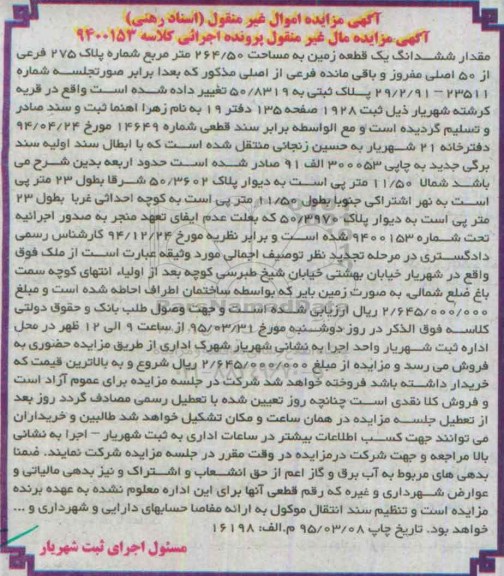 آگهی مزایده اموال غیر منقول (اسناد رهنی)
آگهی مزایده مال غیر منقول پرونده اجرائی کلاسه ۹۴۰۰۱۵۳
مقدار ششدانگ یک قطعه زمین به مساحت ۲۶۴/۵۰ متر مربع شماره پلاک ۲۷۵ فرعی
از ۵۰ اصلی مفروز و باقی مانده فرعی از اصلی مذکور که بعدا برابر صورتجلسه شماره
۲۳۵۱۱ – ۲۹/۲/۹۱ پلاک ثبتی به ۵۰/۸۳۱۹ تغییر داده شده است واقع در قریه
کرشته شهریار ذیل ثبت ۱۹۲۸ صفحه ۱۳۵ دفتر ۱۹ به نام زهرا اهنما ثبت و سند صادر
و تسلیم گردیده است و مع الواسطه برابر سند قطعی شماره ۱۴۶۴۹ مورخ ۹۴/۰۴/۲۴
دفترخانه ۲۱ شهریار به حسین زنجانی منتقل شده است که با ابطال سند اولیه سند
برگی جدید به چاپی ۳۰۰۰۵۳ الف ۹۱ صادر شده است حدود اربعه بدین شرح می
باشد شمالا ۱۱/۵۰ متر پی است به دیوار پلاک ۵۰/۳۶۰۲ شرقا بطول ۲۳ متر پی
است به نهر اشتراکی جنوبا بطول ۱۱/۵۰ متر پی است به کوچه احداثی غربا بطول ۲۳
متر پی است به دیوار پلاک ۵۰/۳۹۷۰ که بعلت عدم ایفای تعهد منجر به صدور اجرائیه
تحت شماره ۹۴۰۰۱۵۳ شده است و برابر نظریه مورخ ۹۴/۱۲/۲۴ کارشناس رسمی
دادگستری در مرحله تجدید نظر توصیف اجمالی مورد وثیقه عبارت است از ملک فوق
واقع در شهریار خیابان بهشتی خیابان شیخ طبرسی کوچه بعد از اولیاء انتهای کوچه سمت
باغ ضلع شمالی، به صورت زمین بایر که بواسطه ساختمان اطراف احاطه شده است و مبلغ
۲/۶۴۵/۰۰۰/۰۰۰ ریال ارزیابی شده است و جهت وصول طلب بانک و حقوق دولتی
کلاسه فوق الذکر در روز دوشنبه مورخ ۹۵/۰۳/۳۱ از ساعت ۹ الی ۱۲ ظهر در محل
اداره ثبت شهریار واحد اجرا به نشانی شهریار شهرک اداری از طریق مزایده حضوری به
فروش می رسد و مزایده از مبلغ ۲/۶۴۵/۰۰۰/۰۰۰ ریال شروع و به بالاترین قیمت که
خریدار داشته باشد فروخته خواهد شد شرکت در جلسه مزایده برای عموم آزاد است
و فروش کلا نقدی است چنانچه روز تعیین شده با تعطیل رسمی مصادف گردد روز بعد
از تعطیل جلسه مزایده در همان ساعت و مکان تشکیل خواهد شد طالبین و خریداران
می توانند جهت کسب اطلاعات بیشتر در ساعات اداری به ثبت شهریار – اجرا به نشانی
بالا مراجعه و جهت شرکت درمزایده در وقت مقرر در جلسه مزایده شرکت نمایند. ضمنا
بدهی های مربوط به آب برق و گاز اعم از حق انشعاب و اشتراک و نیز بدهی مالیاتی و
عوارض شهرداری و غیره که رقم قطعی آنها برای این اداره معلوم نشده به عهده برنده
مزایده است و تنظیم سند انتقال موکول به ارائه مفاصا حسابهای دارایی و شهرداری و ...
خواهد بود. تاریخ چاپ ۹۵/۰۳/۰۸ م.الف: ۱۶۱۹۸
مسئول اجرای ثبت شهریار